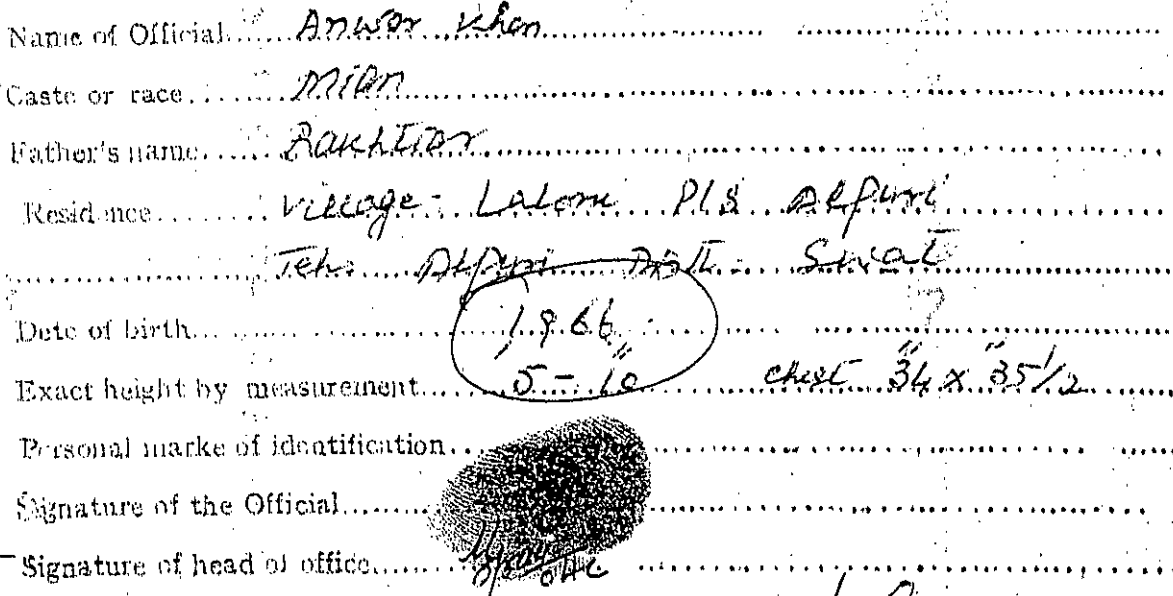 Name of Official Anwar Khan
Caste or race Mian
Father's name Bakhtiar
Residence Village - Laloni P/S Alpuri
Teh: Alpuri Distt - Swat
Date of birth 1966
Exact height by measurement 5 - 10" chest 34" x 35 1/2"
Personal marke of identification
Signature of the Official
Signature of head of office